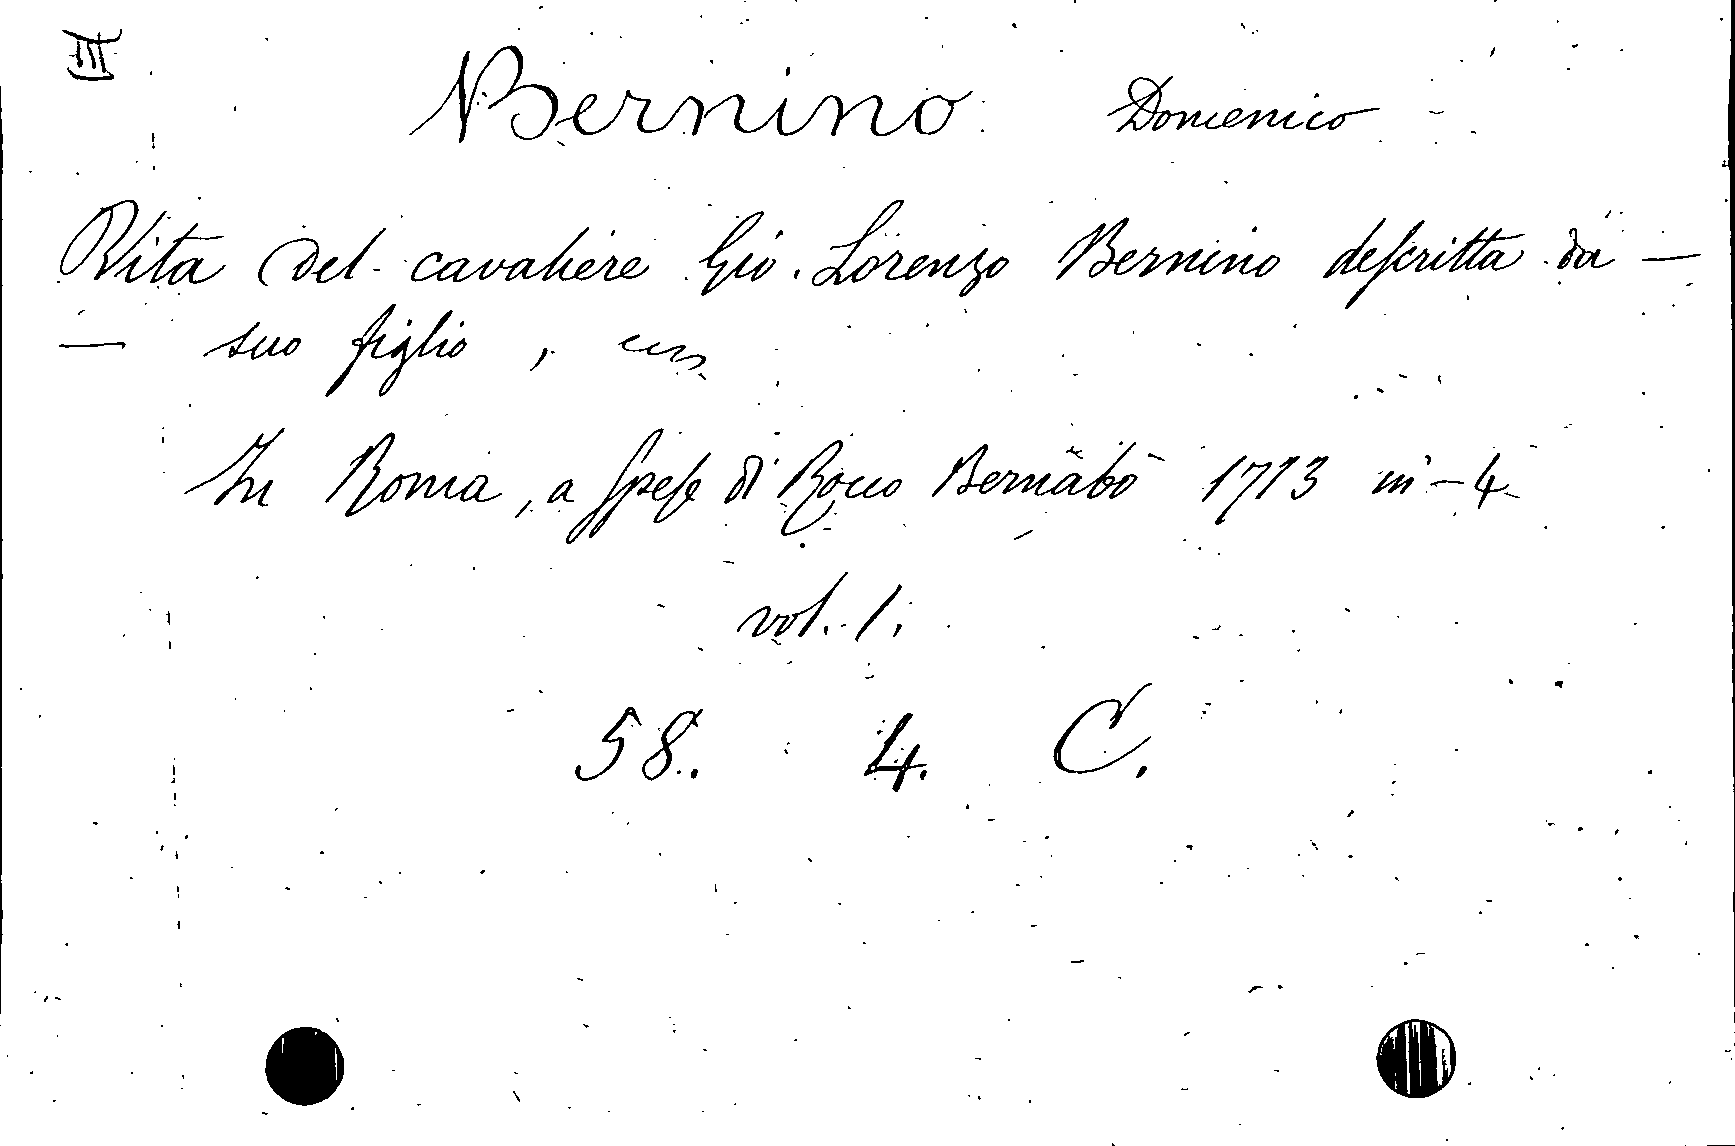 III
Bernino Domenico
Vita del cavaliere Gio. Lorenzo Bernino deſcritta da —
— suo figlio,
In Roma, a ſpeſe di Rocco Bernabò 1713 in-4
vol. 1.
58. 4. C.